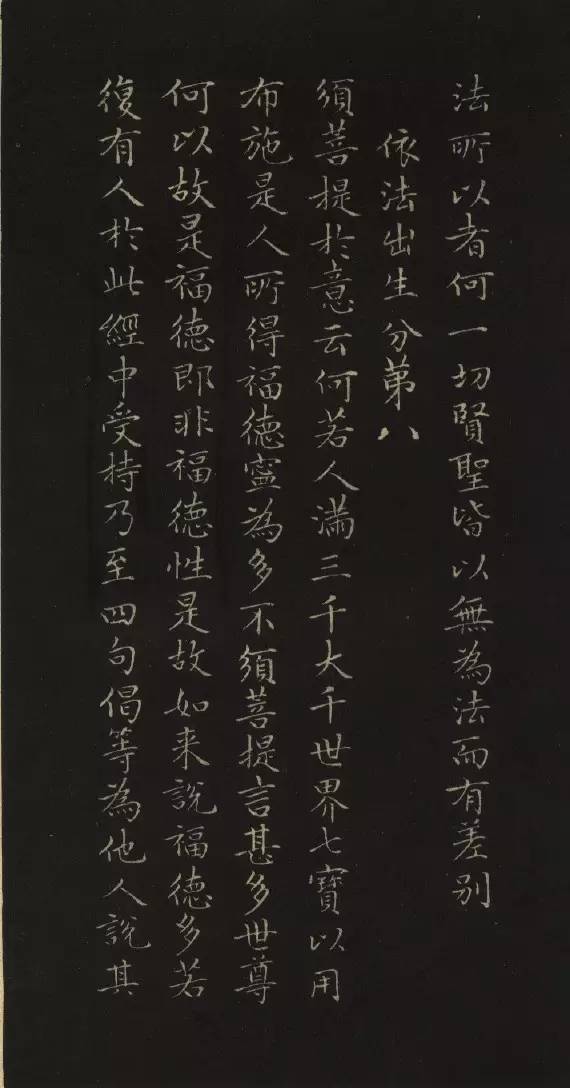 法所以者何一切賢聖皆以無為法而有差别
依法出生分第八
須菩提於意云何若人滿三千大千世界七寶以用
布施是人所得福德寧為多不須菩提言甚多世尊
何以故是福德即非福德性是故如来說福德多若
復有人於此經中受持乃至四句偈等為他人說其